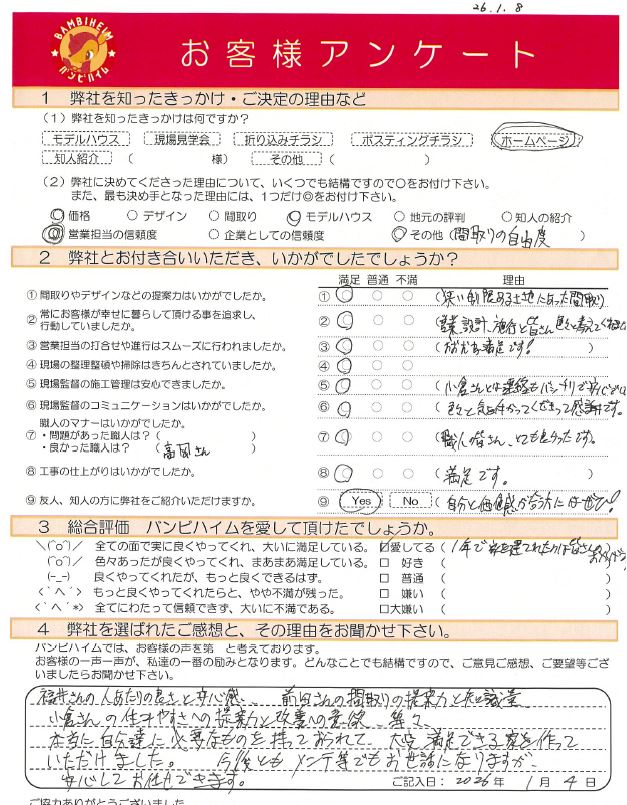 26.1.8
BAMBIHEIM
バンビハイム
お客様アンケート
1 弊社を知ったきっかけ・ご決定の理由など
(1)弊社を知ったきっかけは何ですか?
モデルハウス 現場見学会 折り込みチラシ ポスティングチラシ ホームページ
知人紹介 ( 様) その他 ( )
(2)弊社に決めてくださった理由について、いくつでも結構ですので○をお付け下さい。
また、最も決め手となった理由には、1つだけ◎をお付け下さい。
○ 価格 ○ デザイン ○ 間取り ○ モデルハウス ○ 地元の評判 ○ 知人の紹介
◎ 営業担当の信頼度 ○ 企業としての信頼度 ○ その他 (間取りの自由度 )
2 弊社とお付き合いいただき、いかがでしたでしょうか?
満足 普通 不満 理由
① 間取りやデザインなどの提案力はいかがでしたか。 ① ○ ○ ○ (狭い制限ある土地にあった間取り
② 常にお客様が幸せに暮らして頂ける事を追求し、
行動していましたか。 ② ○ ○ ○ (営業、設計、施行と皆さん
③ 営業担当の打合せや進行はスムーズに行われましたか。 ③ ○ ○ ○ ( 満足です! )
④ 現場の整理整頓や掃除はきちんとされていましたか。 ④ ○ ○ ○
⑤ 現場監督の施工管理は安心できましたか。 ⑤ ○ ○ ○ (小倉さんとは連絡もバッチリで
⑥ 現場監督のコミュニケーションはいかがでしたか。 ⑥ ○ ○ ○ (色々と気にかけてくださって感謝です。
職人のマナーはいかがでしたか。
⑦ ・問題があった職人は?( )
・良かった職人は? (高岡さん ) ⑦ ○ ○ ○ (職人皆さん、とても良かったです。
⑧ 工事の仕上がりはいかがでしたか。 ⑧ ○ ○ ○ (満足です。 )
⑨ 友人、知人の方に弊社をご紹介いただけますか。 ⑨ Yes No (自分と価値感が合う方にはぜひ!
3 総合評価 バンビハイムを愛して頂けたでしょうか。
\(^o^)/ 全ての面で実に良くやってくれ、大いに満足している。 ☑愛してる (1年で家を建てれたのは皆さんの
(^o^)/ 色々あったが良くやってくれ、まあまあ満足している。 □ 好き (
(-_-) 良くやってくれたが、もっと良くできるはず。 □ 普通 (
<`ヘ´> もっと良くやってくれたらと、やや不満が残った。 □ 嫌い (
<`ヘ´*> 全てにわたって信頼できず、大いに不満である。 □大嫌い (
4 弊社を選ばれたご感想と、その理由をお聞かせ下さい。
バンビハイムでは、お客様の声を第一と考えております。
お客様の一声一声が、私達の一番の励みとなります。どんなことでも結構ですので、ご意見ご感想、ご要望等ござ
いましたらお聞かせ下さい。
福井さんの人あたりの良さと安心感、前田さんの間取りの提案力と知識量
小倉さんの住みやすさへの提案力と改善への意欲、等々、
本当に自分達に必要なものを持っておられて、大変満足できる家を作って
いただけました。今後ともメンテ等でもお世話になりますが、
安心してお任せできます。 ご記入日:2026年 1月 4日
ご協力ありがとうございました